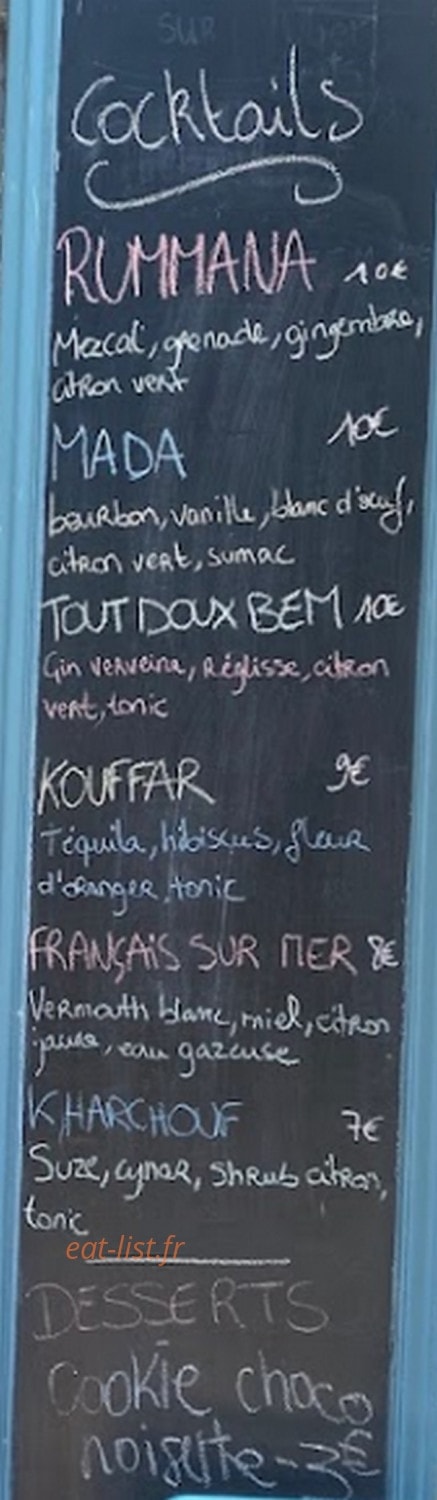 SUR
Cocktails
RUMMANA 10€
Mezcal, grenade, gingembre,
citron vert
MADA 10€
bourbon, vanille, blanc d'œuf,
citron vert, sumac
TOUT DOUX BEM 10€
Gin verveine, réglisse, citron
vert, tonic
KOUFFAR 9€
Téquila, hibiscus, fleur
d'oranger, tonic
FRANÇAIS SUR MER 8€
Vermouth blanc, miel, citron
jaune, eau gazeuse
KHARCHOUF 7€
Suze, cynar, shrub citron,
tonic
eat-list.fr
DESSERTS
Cookie choco
noisette - 3€